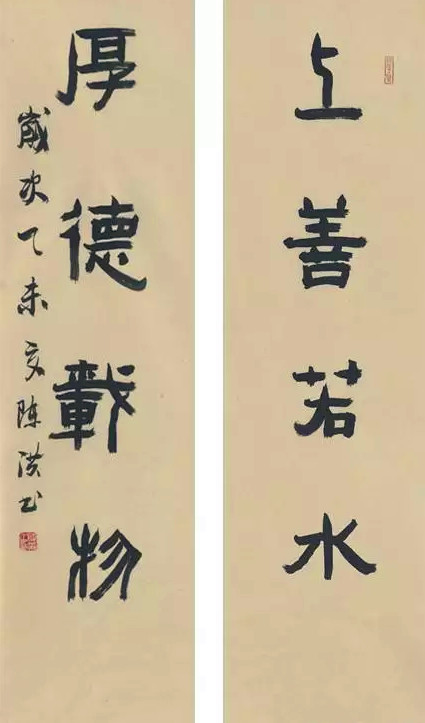 上善若水
厚德載物
歲次乙未夏陈洪书